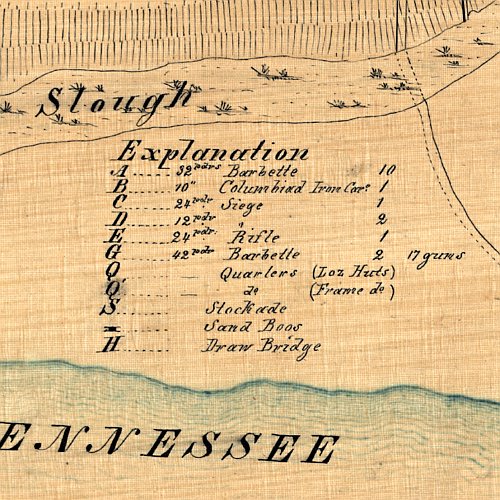 Slough
Explanation
A ...... 32 pdrs Barbette 10
B ...... 10" Columbiad Iron Carr. 1
C ...... 24 pdr Siege 1
D ...... 12 pdr 2
E ...... 24 pdr. " Rifle 1
G ...... 42 pdr Barbette 2 17 guns
Q ...... Quarters (Log Huts)
Q' ...... — do (Frame do)
S ...... Stockade
= ...... Sand Bags
H ...... Draw Bridge
ENNESSEE